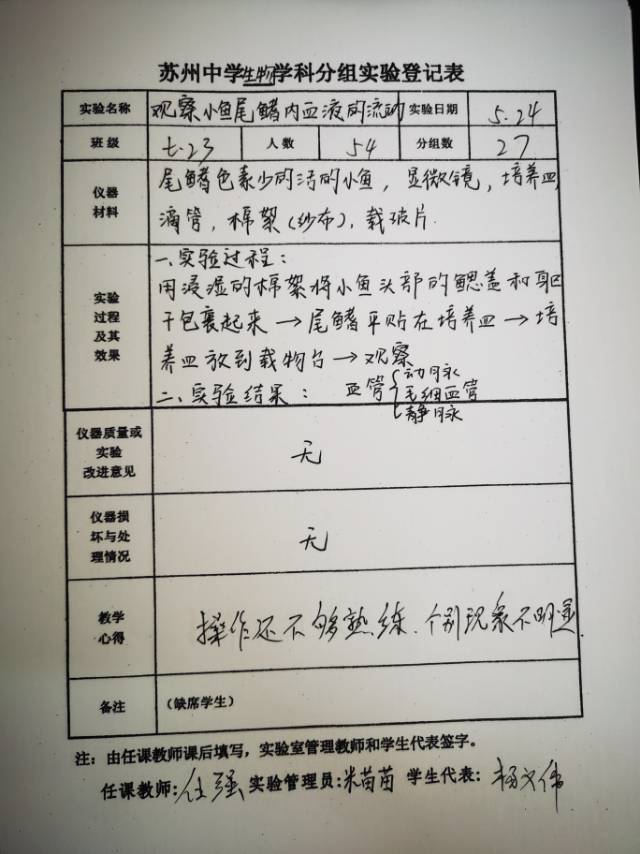 苏州中学生物学科分组实验登记表
实验名称 观察小鱼尾鳍内血液的流动 实验日期 5.24
班级 七.23 人数 54 分组数 27
仪器
材料
尾鳍色素少的活的小鱼，显微镜，培养皿
滴管，棉絮(纱布)，载玻片
实验
过程
及其
效果
一、实验过程：
用浸湿的棉絮将小鱼头部的鳃盖和躯
干包裹起来→尾鳍平贴在培养皿→培
养皿放到载物台→观察
二、实验结果： 血管 动脉
毛细血管
静脉
仪器质量或
实验
改进意见
无
仪器损
坏与处
理情况
无
教学
心得
操作还不够熟练.个别现象不明显
备注 (缺席学生)
注：由任课教师课后填写，实验室管理教师和学生代表签字。
任课教师:任强 实验管理员:米苗苗 学生代表:杨文伟